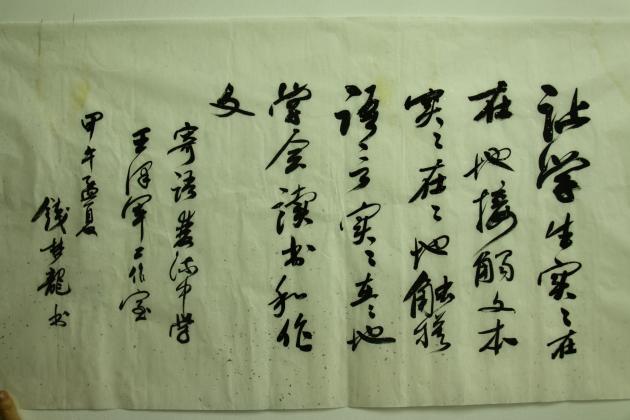 让学生实〻在
在地接触文本
实〻在〻地触摸
语言实〻在〻地
学会读书和作
文
寄语娄江中学
王泽军工作室
甲午孟夏
钱梦龙书